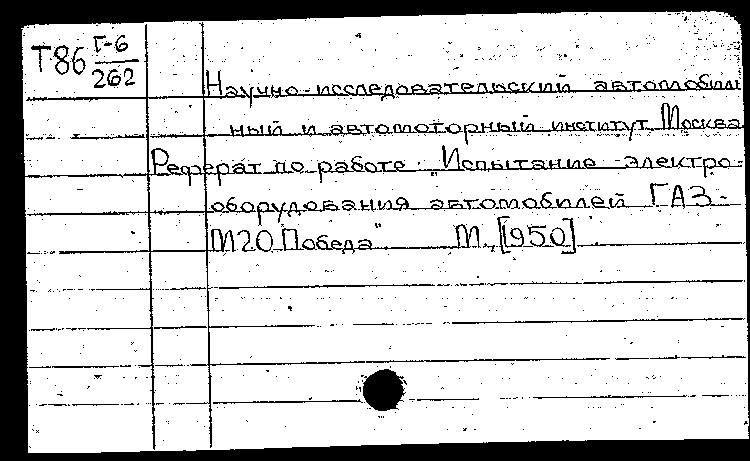 Т86 Г-6
262
Научно-исследовательский автомобиль
ный и автомоторный институт Москва
Реферат по работе „Испытание электро-
оборудования автомобилей ГАЗ-
М20 Победа" М., [1950]